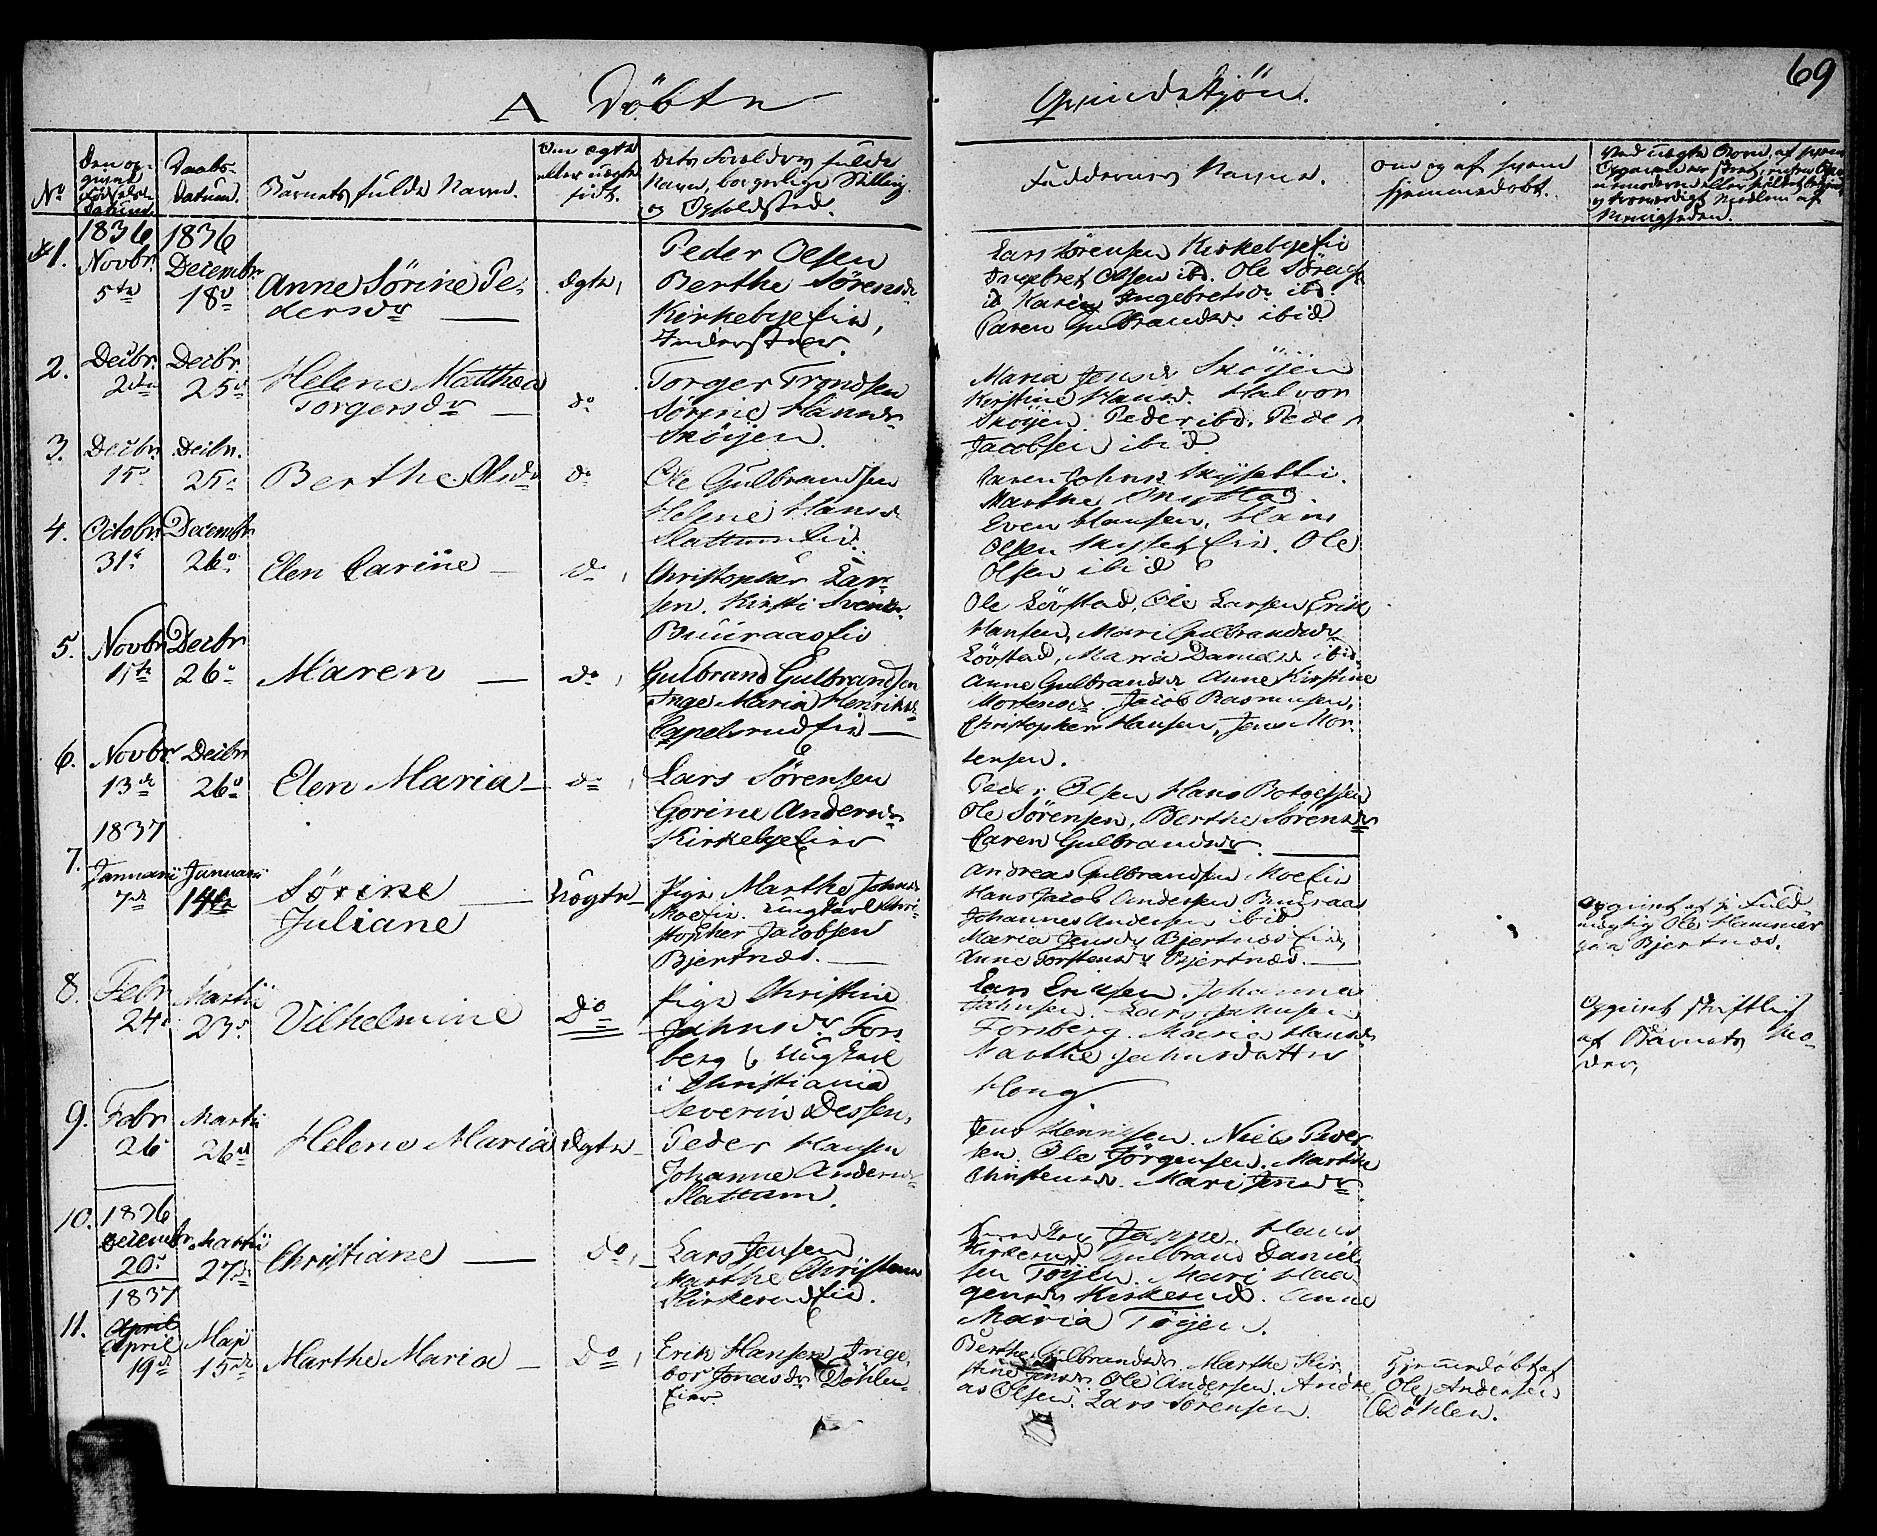 69
A Döbte Qvindekjön.
No
Den opgivne Födsels Datum.
Daabs-Datum.
Barnets fulde Navn.
Om ægte eller uægte födt.
Dets Forældres fulde Navn, borgerlige Stilling og Opholdsted.
Faddernes Navne.
Om og af hvem hjemmedöbt.
1.
1836
Novbr.
5te
1836
Decembr.
18de
Anne Sörine Pe-
dersdr
Ægte,
Peder Olsen
Berthe Sörensdr
Kirkebyeeie,
Lars Sörensen Kirkebyeeie
Ingebret Olsen ibd. Ole Sörens
Karen Ingebretsdr ibd.
Karen Gulbrandsdr ibid.
2.
Decbr.
2den
Decbr.
25de
Helene Matthea
Torgersdr
do
Torger Trondsen
Sörine Hansdr
Sköijen.
Maria Jensdr Sköijen
Kirstine Hansd. Halvor
Sköijen. Peder ibd. Peder
Jacobsen ibid
3.
Decbr.
15
Decbr.
25
Berthe Olsdr
do
Ole Gulbrandsen
Helene Hansd.
Slattumeie.
Karen Johns
Marthe
Even Hansen, Hans
Olsen eie. Ole
Olsen ibid
4.
Octobr
31
Decembr
26
Elen Carine
do
Christopher Lar-
sen. Kirsti Svendsdr
Buuraaseie
Ole Lövstad, Ole Larsen, Erik
Hansen, Mari Gulbrandsdr
Lövstad, Maria Danielsd ibid.
5.
Novbr
15te
Decbr
26
Maren
do
Gulbrand Gulbrandsen
Inge Maria Henriksd.
Cappelsrudeie
Anne Gulbrandsdr Anne Kirstine
Mortensdr. Jacob Rasmusen,
Christopher Hansen, Jens Mor-
tensen.
6.
Novbr
13de
Decbr
26de
Elen Maria
do
Lars Sörensen
Gorine Andersdr
Kirkebyeeie
Peder Olsen Hans
Ole Sörensen, Berthe Sörensdr
Caren Gulbrandsdr.
7.
1837
Januarii
7de
Januarii
14de
Sörine
Juliane
Uægte
Pige Marthe Johnsd
Moeeie. Ungkarl Chri-
stopher Jacobsen
Bjertnæs.
Andreas Gulbrandsen Moeeie
Hans Jacob Andersen Buuraas
Johannes Andersen ibid
Maria Jensdr Bjertnæseie,
Anne Torstensdr Bjertnæs.
Opgivet af p. Fuld-
mægtig Ole Hammer
paa Bjertnæs.
8.
Febr
24
Martii
23
Vilhelmine
Do
Pige Christine
Jahnsdr Fors-
berg & Ungkarl
i Christiania
Severin Dessen,
Lars Eriksen. Johanna
Jahnsen. Lars Jahnsen
Forsberg. Maria Hansdr
Marthe Jahnsdatter
Houg
Opgivet skriftlig
af Barnets Mo-
der,
9.
Febr
26
Martii
26de
Helene Maria
Ægte
Peder Hansen
Johanne Andersdr
Slattum.
Jens Henriksen. Niels Peder-
sen. Ole Jörgensen. Marthe
Christensdr. Mari Jensdr
10.
1836
Decembr.
20
Martii
27de
Christiane
Do
Lars Jensen
Marthe Christensd
Kirkerudeie.
Janne. Hans
Kirkerud Gulbrand Daniel-
sen Töijen. Mari Haa-
gensdr Kirkerud. Anne
Maria Töijen.
11.
1837
April
April
19de
Maji
15de
Marthe Maria
Do
Erik Hansen Inge-
bor Jonasdr Döhlen-
Eier.
Berthe Gulbrandsdr. Marthe Kir-
stine Jensdr Ole Andersen. Andre-
as Olsen. Lars Sörensen.
Hjemmedöbt af
Ole Andersen
Döhlen.